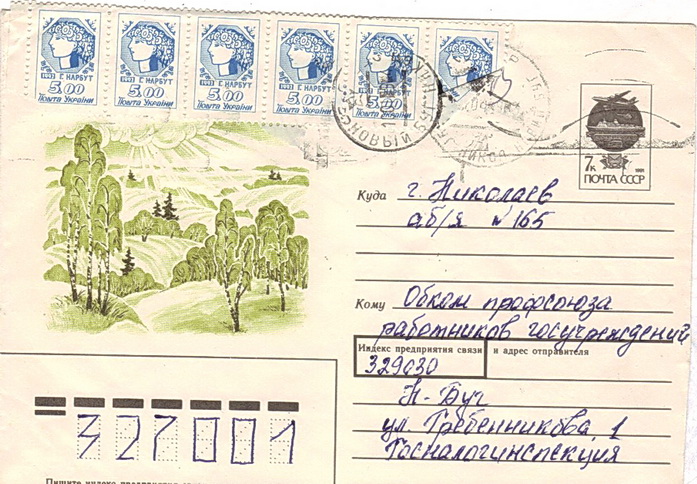 1992 Г. НАРБУТ 5.00 Пошта України
1992 Г. НАРБУТ 5.00 Пошта України
1992 Г. НАРБУТ 5.00 Пошта України
1992 Г. НАРБУТ 5.00 Пошта України
1992 Г. НАРБУТ 5.00 Пошта України
Г. НАРБУТ 5.00 Пошта України
7к
ПОЧТА СССР
Куда г. Николаев
аб/я №165
Кому Обком профсоюза
работников госучреждений
Индекс предприятия связи и адрес отправителя
329030
Н-Буг
ул. Гребенникова, 1
Госналогинспекция
327001
Пишите индекс предприятия